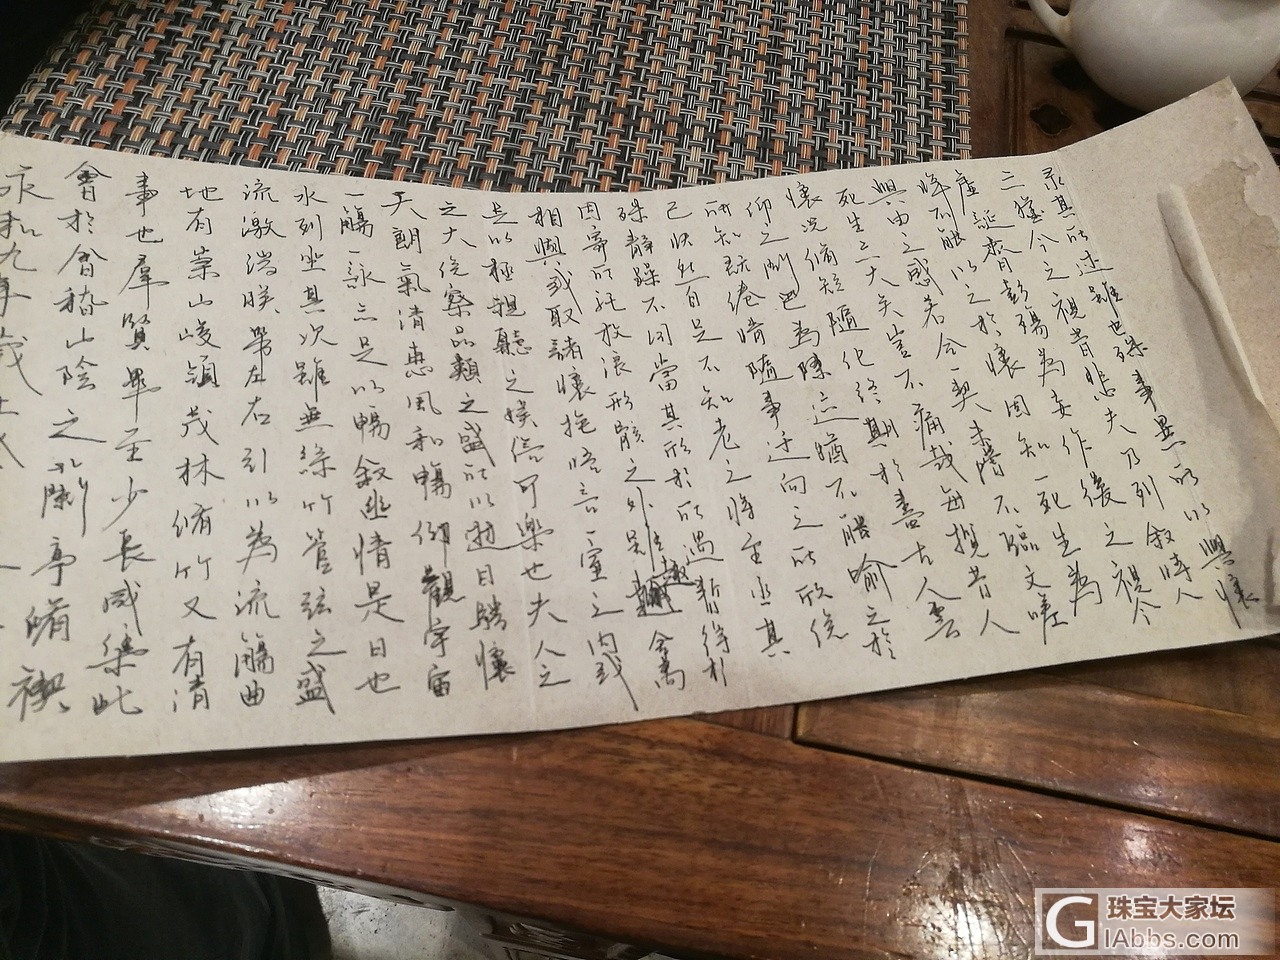 永和九年歲
會於會稽山陰之蘭亭脩禊
事也羣賢畢至少長咸集此
地有崇山峻領茂林脩竹又有清
流激湍映帶左右引以為流觴曲
水列坐其次雖無絲竹管弦之盛
一觴一詠亦足以暢敘幽情是日也
天朗氣清惠風和暢仰觀宇宙
之大俯察品類之盛所以遊目騁懷
足以極視聽之娛信可樂也夫人之
相與或取諸懷抱悟言一室之內或
因寄所託放浪形骸之外雖趣舍萬
殊靜躁不同當其欣於所遇暫得於
己快然自足不知老之將至及其
所知既倦情隨事遷向之所欣俛
仰之間已為陳迹猶不能喻之於
懷況脩短隨化終期於盡古人雲
死生亦大矣豈不痛哉每攬昔人
興由之感若合一契未嘗不臨文嗟
悼不能以之於懷固知一死生為
虛誕齊彭殤為妄作後之視今
二猶今之視昔悲夫乃列敘時人
录其所述雖世殊事異所以興懷
珠宝大家坛
GIAbbs.com